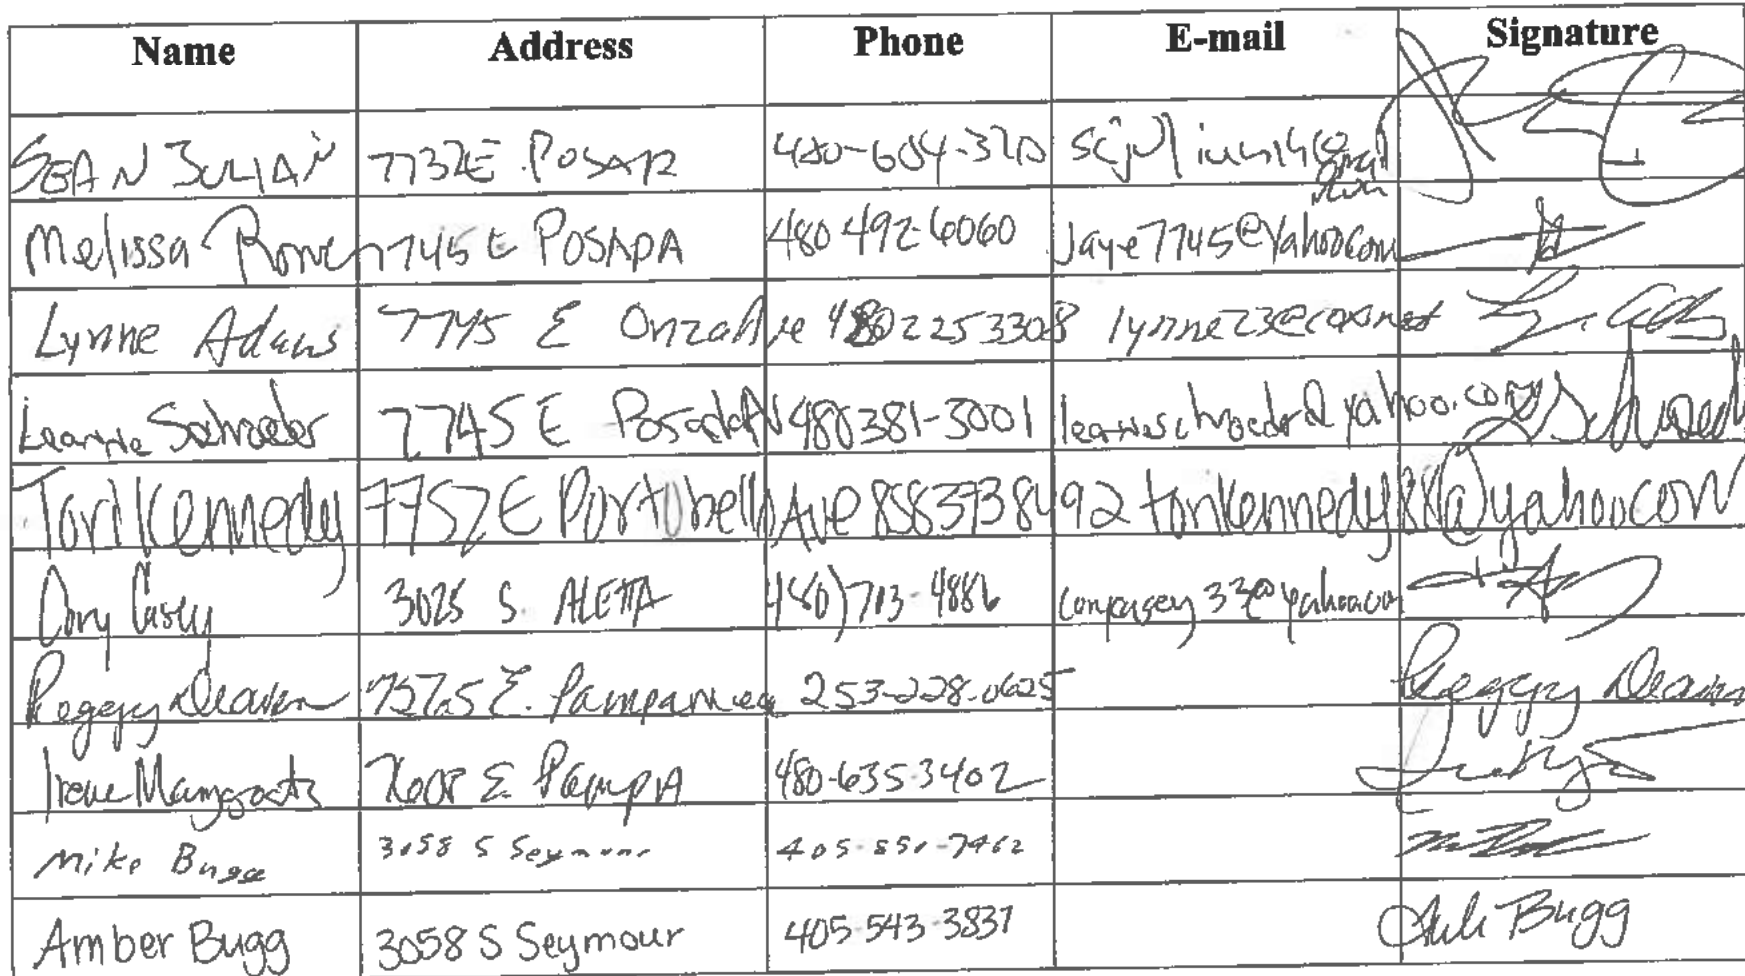 Name Address Phone E-mail Signature
SEAN JULIAN 7732E. POSADA 480-604-3210
Melissa 7745 E POSADA 480 492-6060 Jaye7745@Yahoo.com
Lynne Adams 7745 E Onza Ave 480 225 3308 lynne23@cox.net
Leannie Schroeder 7745 E Posada AV 480 381-3001 leannieschroeder@yahoo.com
Tori Kennedy 7752 E Portobello Ave 8583738492 torikennedy88@yahoo.com
Cory Casey 3025 S. ALETTA (480) 713-4886 corycasey33@yahoo.com
Peggy E. 253-228-0625 Peggy
Irene E. PAMPA 480-635-3402
Mike Bugg 3058 S Seymour 405-850-7462
Amber Bugg 3058 S Seymour 405-543-3837 Bugg